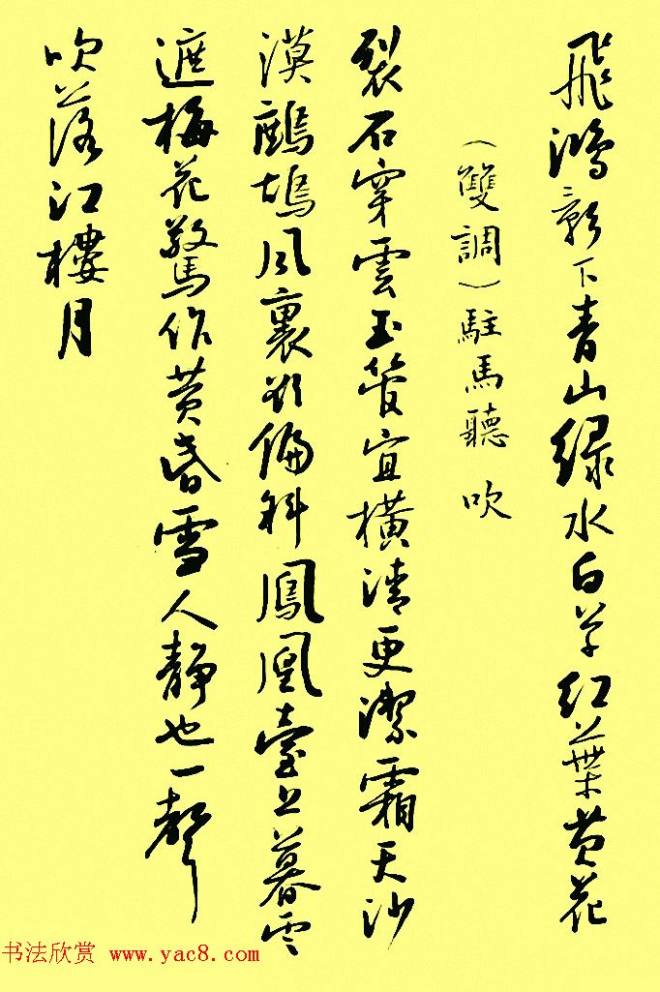 飛鴻影下青山綠水白草紅葉黄花
（雙調）駐馬聽 吹
裂石穿雲玉管宜橫清更潔霜天沙
漠鷓鴣風裏欲偏斜鳳凰臺上暮雲
遮梅花驚作黄昏雪人靜也一聲
吹落江樓月
书法欣赏 www.yac8.com